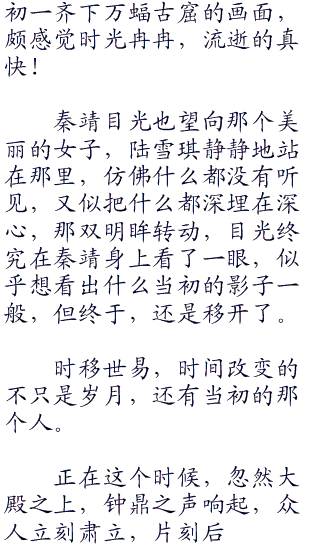 初一齐下万蝠古窟的画面，
颇感觉时光冉冉，流逝的真
快！
秦靖目光也望向那个美
丽的女子，陆雪琪静静地站
在那里，仿佛什么都没有听
见，又似把什么都深埋在深
心，那双明眸转动，目光终
究在秦靖身上看了一眼，似
乎想看出什么当初的影子一
般，但终于，还是移开了。
时移世易，时间改变的
不只是岁月，还有当初的那
个人。
正在这个时候，忽然大
殿之上，钟鼎之声响起，众
人立刻肃立，片刻后